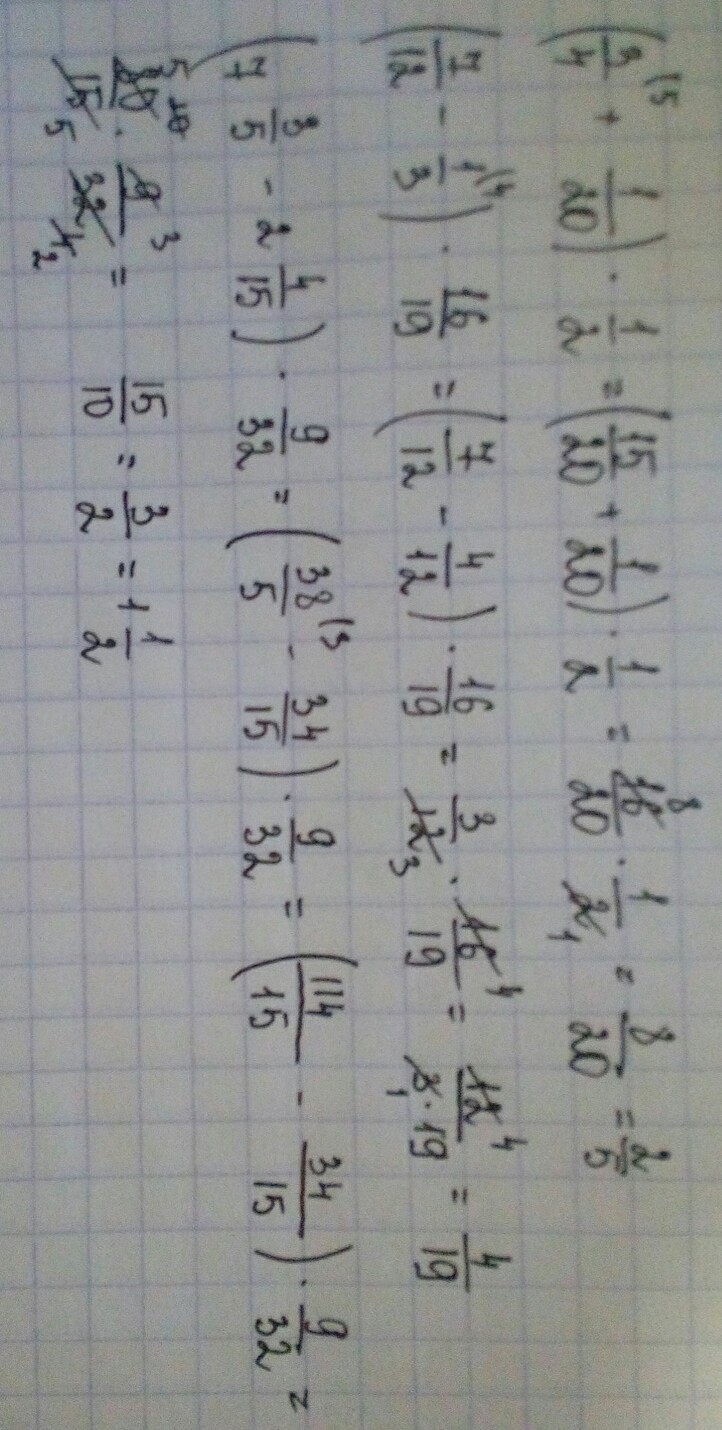 (3/4 ⁽⁵ + 1/20) · 1/2 = (15/20 + 1/20) · 1/2 = 16/20 ⁸ · 1/2 ₁ = 8/20 = 2/5
(7/12 - 1/3 ⁽⁴) · 16/19 = (7/12 - 4/12) · 16/19 = 3/12 ₃ · 16/19 ⁴ = 12/3·19 ⁴ ₁ = 4/19
(7 3/5 - 2 4/15) · 9/32 = (38/5 ⁽³ - 34/15) · 9/32 = (114/15 - 34/15) · 9/32 =
80/15 ⁵ ¹⁰ ₅ · 9/32 ³ ₄ ₂ = 15/10 = 3/2 = 1 1/2